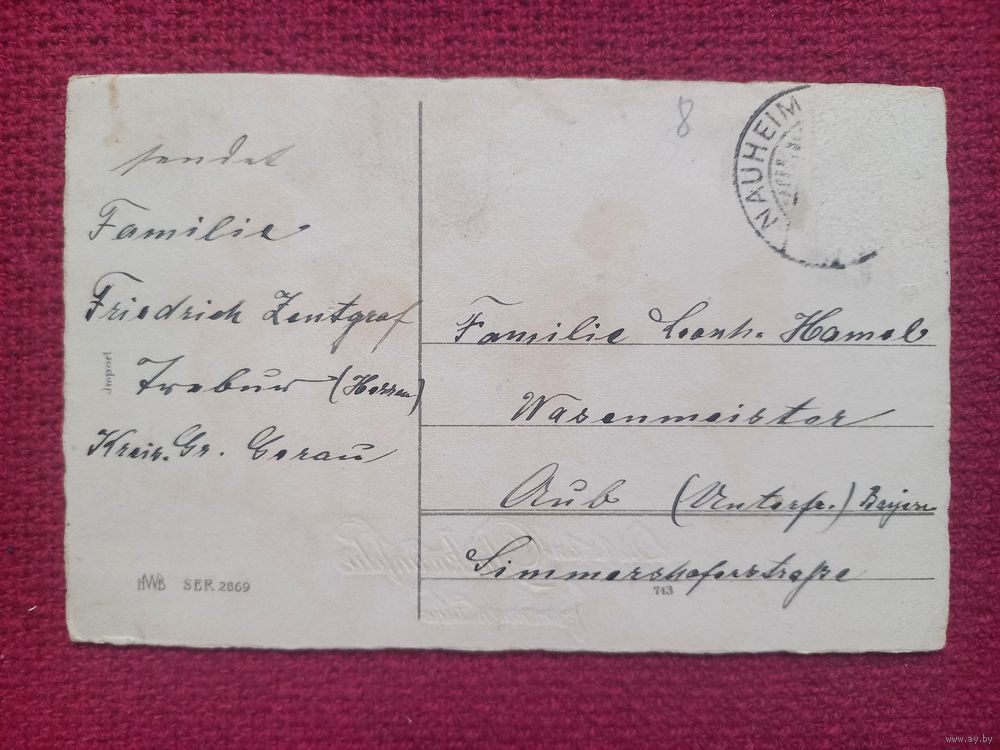 sendet
Familie
Friedrich Zentgraf
Trebur (Hessen)
Kreis. Gr. Gerau
Import
HWB SER 2869
8
NAUHEIM
Familie Leonh. Hamel
Wasenmeister
Aub (Unterfr.) Bayern
Simmershoferstraße
713
www.ay.by